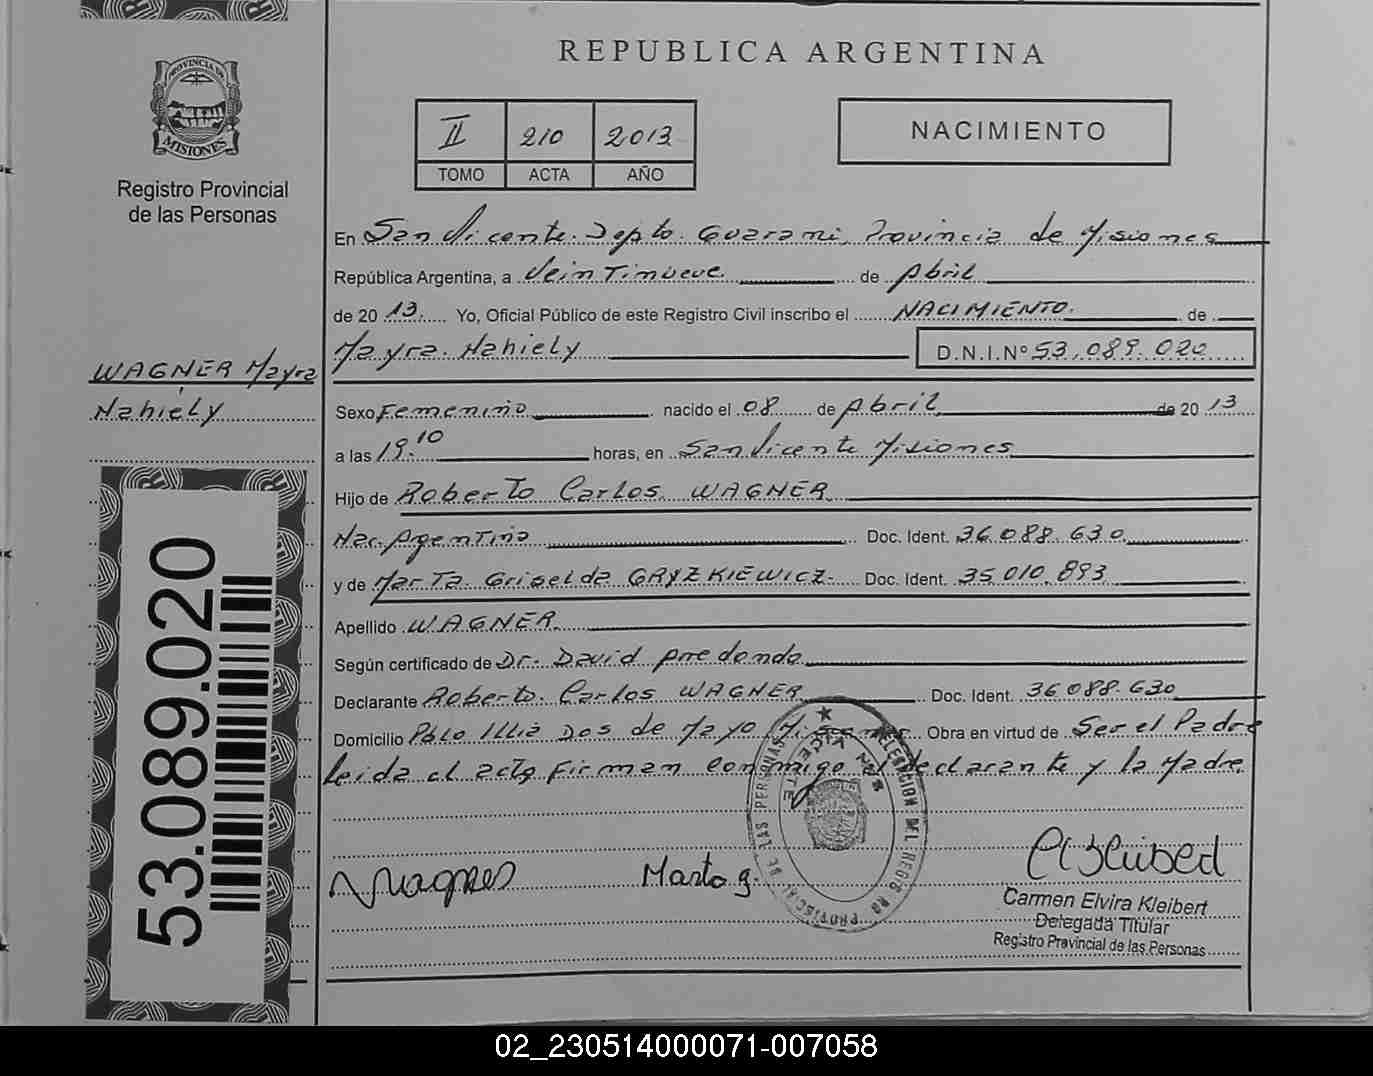 REPUBLICA ARGENTINA
PROVINCIA DE
MISIONES
Registro Provincial
de las Personas
II 210 2013
TOMO ACTA AÑO
NACIMIENTO
En San Vicente. Depto. Guarani, Provincia de Misiones
República Argentina, a Veintinueve de Abril
de 2013. Yo, Oficial Público de este Registro Civil inscribo el NACIMIENTO. de
Mayra. Nahiely D.N.I.Nº 53.089.020
WAGNER Mayra
Nahiely
Sexo Femenino nacido el 08 de Abril de 2013
a las 19.10 horas, en San Vicente Misiones
Hijo de Roberto Carlos WAGNER
Nac. Argentina Doc. Ident. 36.088.630
y de Marta Griselda GRYZKIEWICZ. Doc. Ident. 35.010.893
Apellido WAGNER
Según certificado de Dr. David Arredondo
Declarante Roberto Carlos WAGNER Doc. Ident. 36.088.630
Domicilio Pblo Illia Dos de Mayo Misiones Obra en virtud de Ser el Padre
leida el acta firman conmigo el declarante y la Madre.
53.089.020
DELEGACION DEL REGISTRO PROVINCIAL DE LAS PERSONAS
SAN VICENTE
Wagner
Marta g.
Carmen Elvira Kleibert
Delegada Titular
Registro Provincial de las Personas
02_230514000071-007058